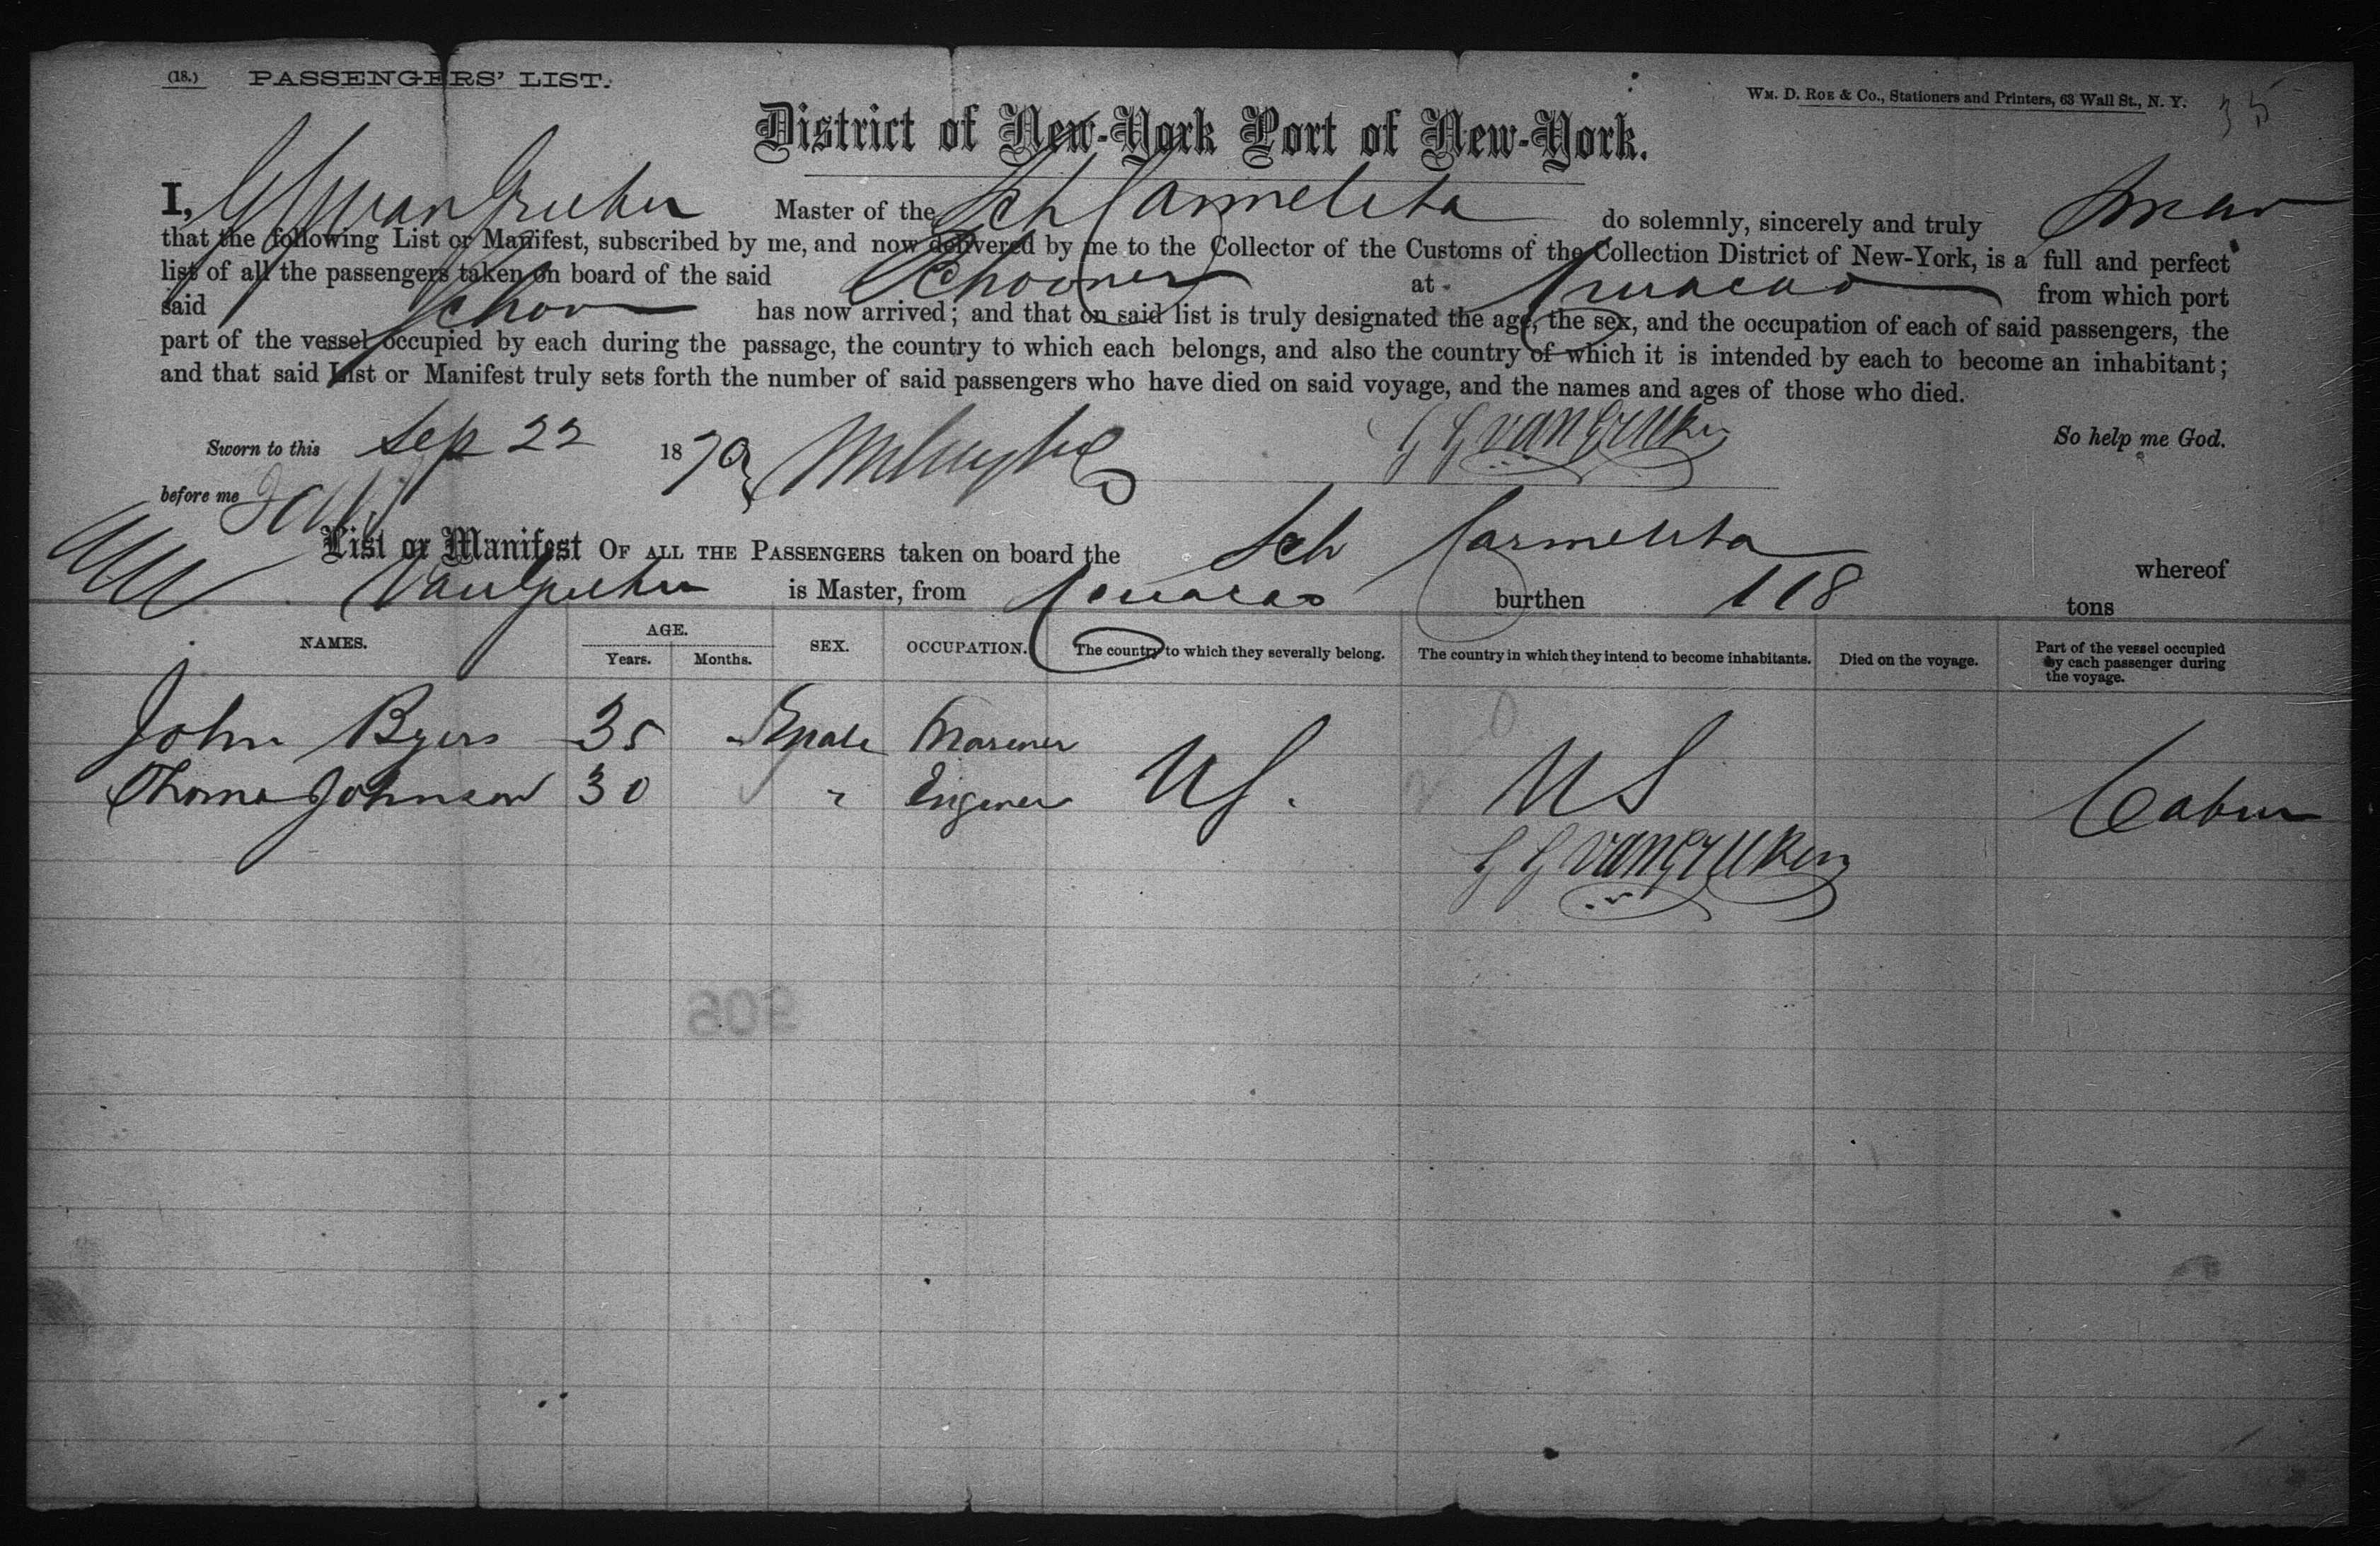 (18.) PASSENGERS' LIST.
WM. D. ROE & Co., Stationers and Printers, 63 Wall St., N. Y. 35
District of New-York Port of New-York.
I, Master of the Sch Carmelita do solemnly, sincerely and truly swear
that the following List or Manifest, subscribed by me, and now delivered by me to the Collector of the Customs of the Collection District of New-York, is a full and perfect
list of all the passengers taken on board of the said Schooner at Curacao from which port
said Schor has now arrived; and that on said list is truly designated the age, the sex, and the occupation of each of said passengers, the
part of the vessel occupied by each during the passage, the country to which each belongs, and also the country of which it is intended by each to become an inhabitant;
and that said List or Manifest truly sets forth the number of said passengers who have died on said voyage, and the names and ages of those who died.
Sworn to this Sep 22 187 So help me God.
before me
List or Manifest OF ALL THE PASSENGERS taken on board the Sch Carmelita whereof
is Master, from Curacao burthen 118 tons
NAMES. AGE. Years. Months. SEX. OCCUPATION. The country to which they severally belong. The country in which they intend to become inhabitants. Died on the voyage. Part of the vessel occupied by each passenger during the voyage.
John Byers 35 Male Mariner
Thomas Johnson 30 " Engineer US. US Cabin
906